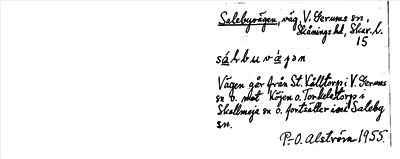 Salebyvägen, väg, V. Gerums sn,
Skånings hd, Skar. l.
15
sálbuvàjən
Vägen går från St. Kålltorp i V. Gerums
sn o. mot Köjen o. Torkelstorp i
Skallmeja sn o. fortsätter in i Saleby
sn.
P.-O. Alström 1955